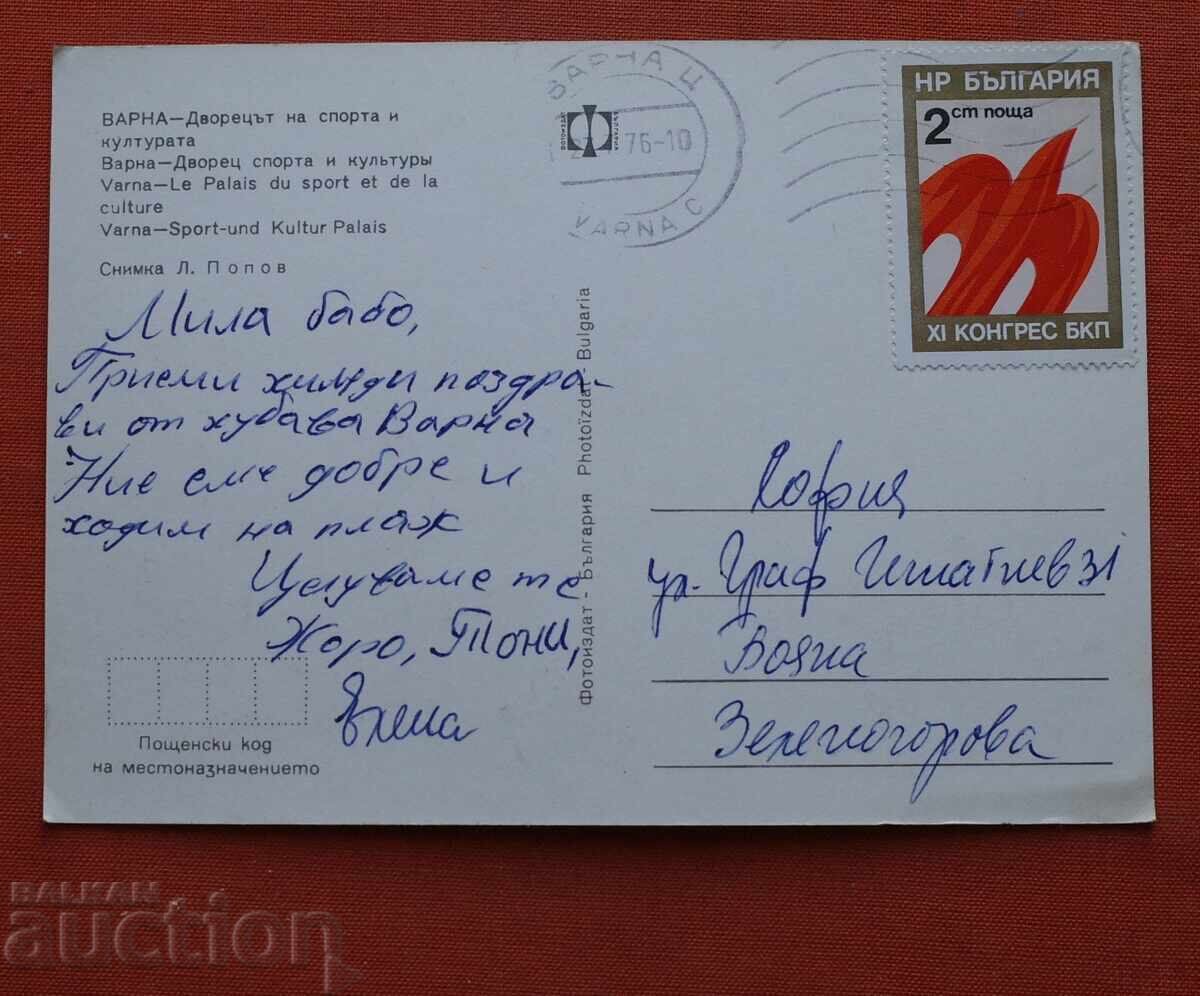 ВАРНА—Дворецът на спорта и
културата
Варна—Дворец спорта и культуры
Varna—Le Palais du sport et de la
culture
Varna—Sport-und Kultur Palais
Снимка Л. Попов
Мила бабо,
Приеми хиляди поздра-
ви от хубава Варна
Ние сме добре и
ходим на плаж
Целуваме те
Жоро, Тони,
Елена
Пощенски код
на местоназначението
Фотоиздат - България Photoïzdat - Bulgaria
ВАРНА Ц
76-10
VARNA C
НР БЪЛГАРИЯ
2 ст поща
XI КОНГРЕС БКП
София
ул. Граф Игнатиев 31
Бояна
Зеленогорова
BALKAN
auction